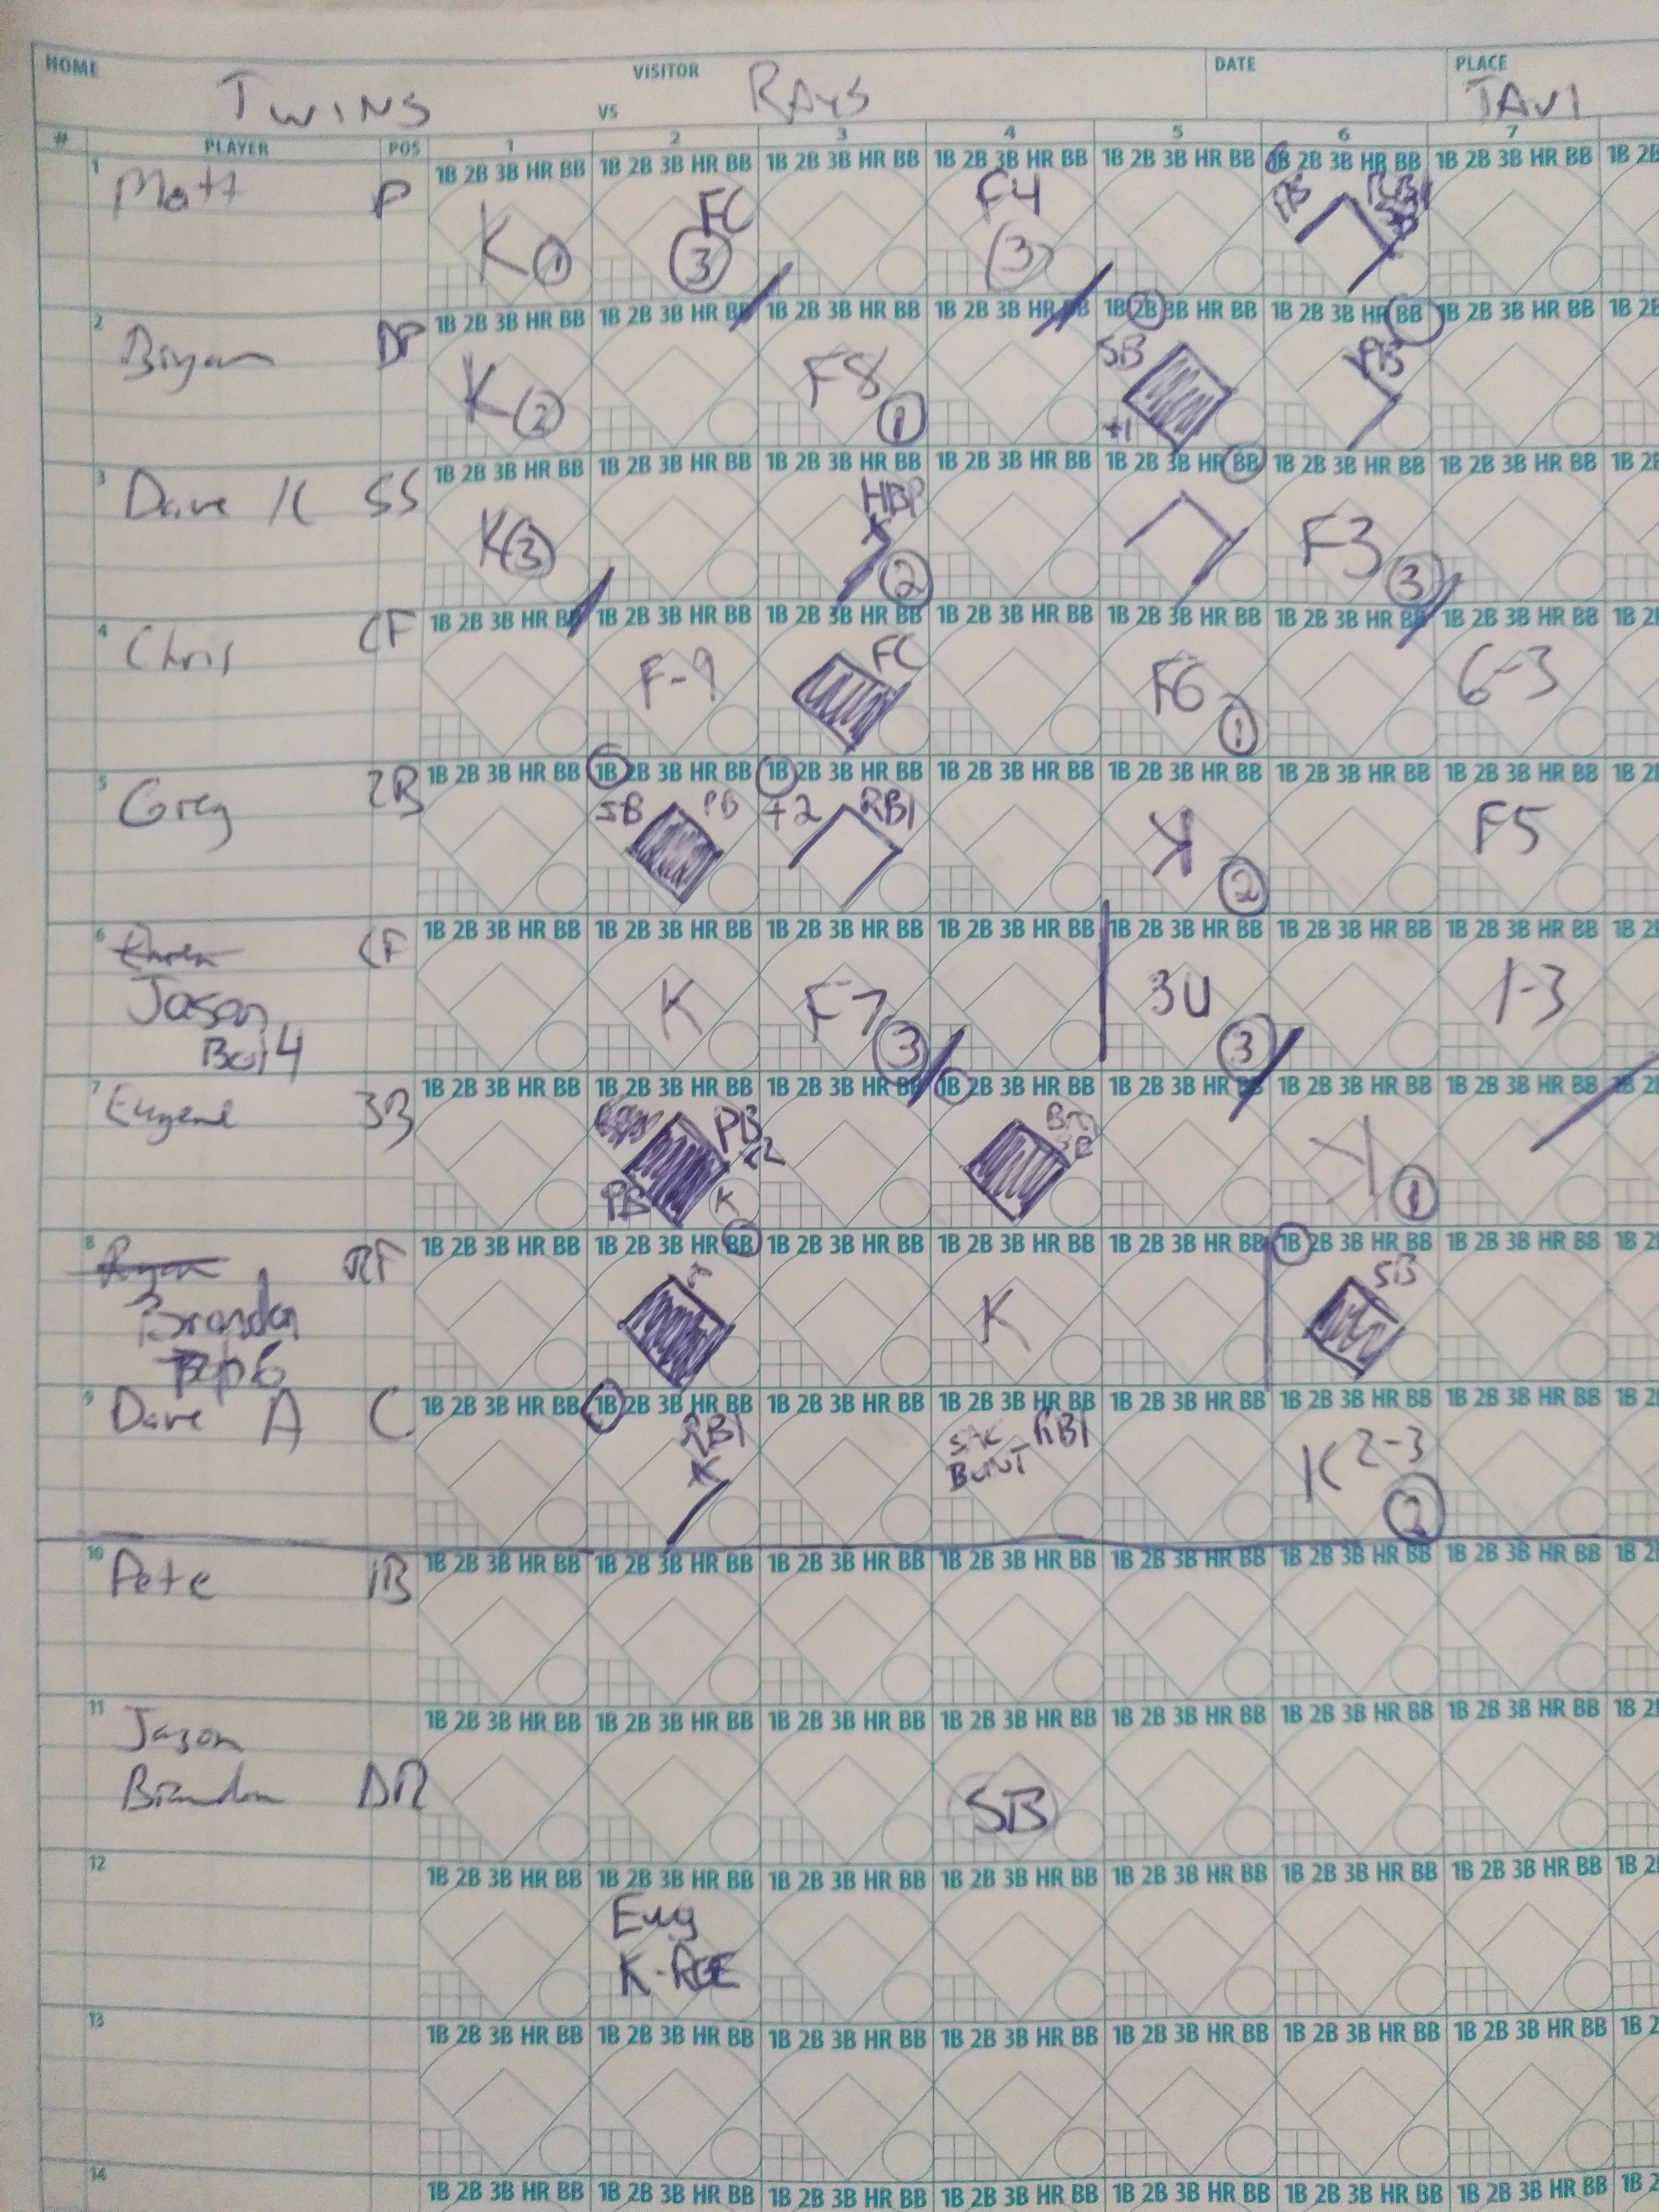 HOME TWINS VS VISITOR RAYS DATE PLACE TAVI
# PLAYER POS 1 2 3 4 5 6 7
1B 2B 3B HR BB 1B 2B 3B HR BB 1B 2B 3B HR BB 1B 2B 3B HR BB 1B 2B 3B HR BB 1B 2B 3B HR BB 1B 2B 3B HR BB 1B 2B
1 Matt P K 1 FC 3 F4 3 PB
1B 2B 3B HR BB 1B 2B 3B HR BB 1B 2B 3B HR BB 1B 2B 3B HR BB 1B 2B 3B HR BB 1B 2B 3B HR BB 1B 2B 3B HR BB 1B 2B
2 Bryan DP K 2 F8 1 SB +1 PB
1B 2B 3B HR BB 1B 2B 3B HR BB 1B 2B 3B HR BB 1B 2B 3B HR BB 1B 2B 3B HR BB 1B 2B 3B HR BB 1B 2B 3B HR BB 1B 2B
3 Dave K SS K 3 HBP 2 F3 3
1B 2B 3B HR BB 1B 2B 3B HR BB 1B 2B 3B HR BB 1B 2B 3B HR BB 1B 2B 3B HR BB 1B 2B 3B HR BB 1B 2B 3B HR BB 1B 2B
4 Chris CF F-9 FC F6 1 6-3
1B 2B 3B HR BB 1B 2B 3B HR BB 1B 2B 3B HR BB 1B 2B 3B HR BB 1B 2B 3B HR BB 1B 2B 3B HR BB 1B 2B 3B HR BB 1B 2B
5 Greg 2B SB PB +2 RBI K 2 F5
1B 2B 3B HR BB 1B 2B 3B HR BB 1B 2B 3B HR BB 1B 2B 3B HR BB 1B 2B 3B HR BB 1B 2B 3B HR BB 1B 2B 3B HR BB 1B 2B
6 CF
Jason K F7 3 3U 3 1-3
Bot 4
1B 2B 3B HR BB 1B 2B 3B HR BB 1B 2B 3B HR BB 1B 2B 3B HR BB 1B 2B 3B HR BB 1B 2B 3B HR BB 1B 2B 3B HR BB 1B 2B
7 Eugene 3B PB +2 PB K K 1
1B 2B 3B HR BB 1B 2B 3B HR BB 1B 2B 3B HR BB 1B 2B 3B HR BB 1B 2B 3B HR BB 1B 2B 3B HR BB 1B 2B 3B HR BB 1B 2B
8 Ryan RF SB
Brandon K
Top 6
1B 2B 3B HR BB 1B 2B 3B HR BB 1B 2B 3B HR BB 1B 2B 3B HR BB 1B 2B 3B HR BB 1B 2B 3B HR BB 1B 2B 3B HR BB 1B 2B
9 Dave A C RBI K SAC BUNT RBI K 2-3 2
1B 2B 3B HR BB 1B 2B 3B HR BB 1B 2B 3B HR BB 1B 2B 3B HR BB 1B 2B 3B HR BB 1B 2B 3B HR BB 1B 2B 3B HR BB 1B 2B
10 Pete 1B
1B 2B 3B HR BB 1B 2B 3B HR BB 1B 2B 3B HR BB 1B 2B 3B HR BB 1B 2B 3B HR BB 1B 2B 3B HR BB 1B 2B 3B HR BB 1B 2B
11 Jason
Brandon DR SB
1B 2B 3B HR BB 1B 2B 3B HR BB 1B 2B 3B HR BB 1B 2B 3B HR BB 1B 2B 3B HR BB 1B 2B 3B HR BB 1B 2B 3B HR BB 1B 2B
12 Eug
K-ROE
1B 2B 3B HR BB 1B 2B 3B HR BB 1B 2B 3B HR BB 1B 2B 3B HR BB 1B 2B 3B HR BB 1B 2B 3B HR BB 1B 2B 3B HR BB 1B 2
13
1B 2B 3B HR BB 1B 2B 3B HR BB 1B 2B 3B HR BB 1B 2B 3B HR BB 1B 2B 3B HR BB 1B 2B 3B HR BB 1B 2B 3B HR BB 1B 2
14